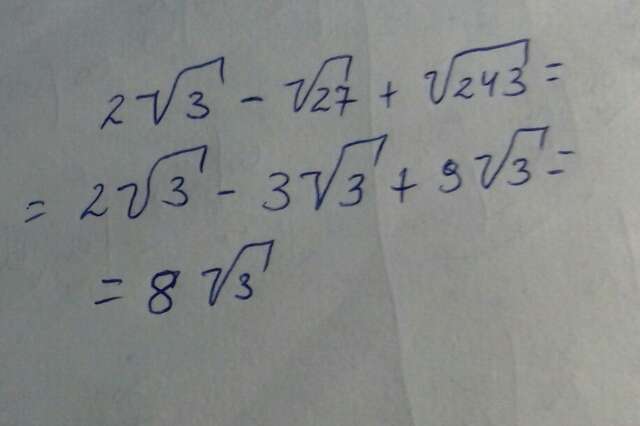 2√3 - √27 + √243 =
= 2√3 - 3√3 + 9√3 =
= 8√3